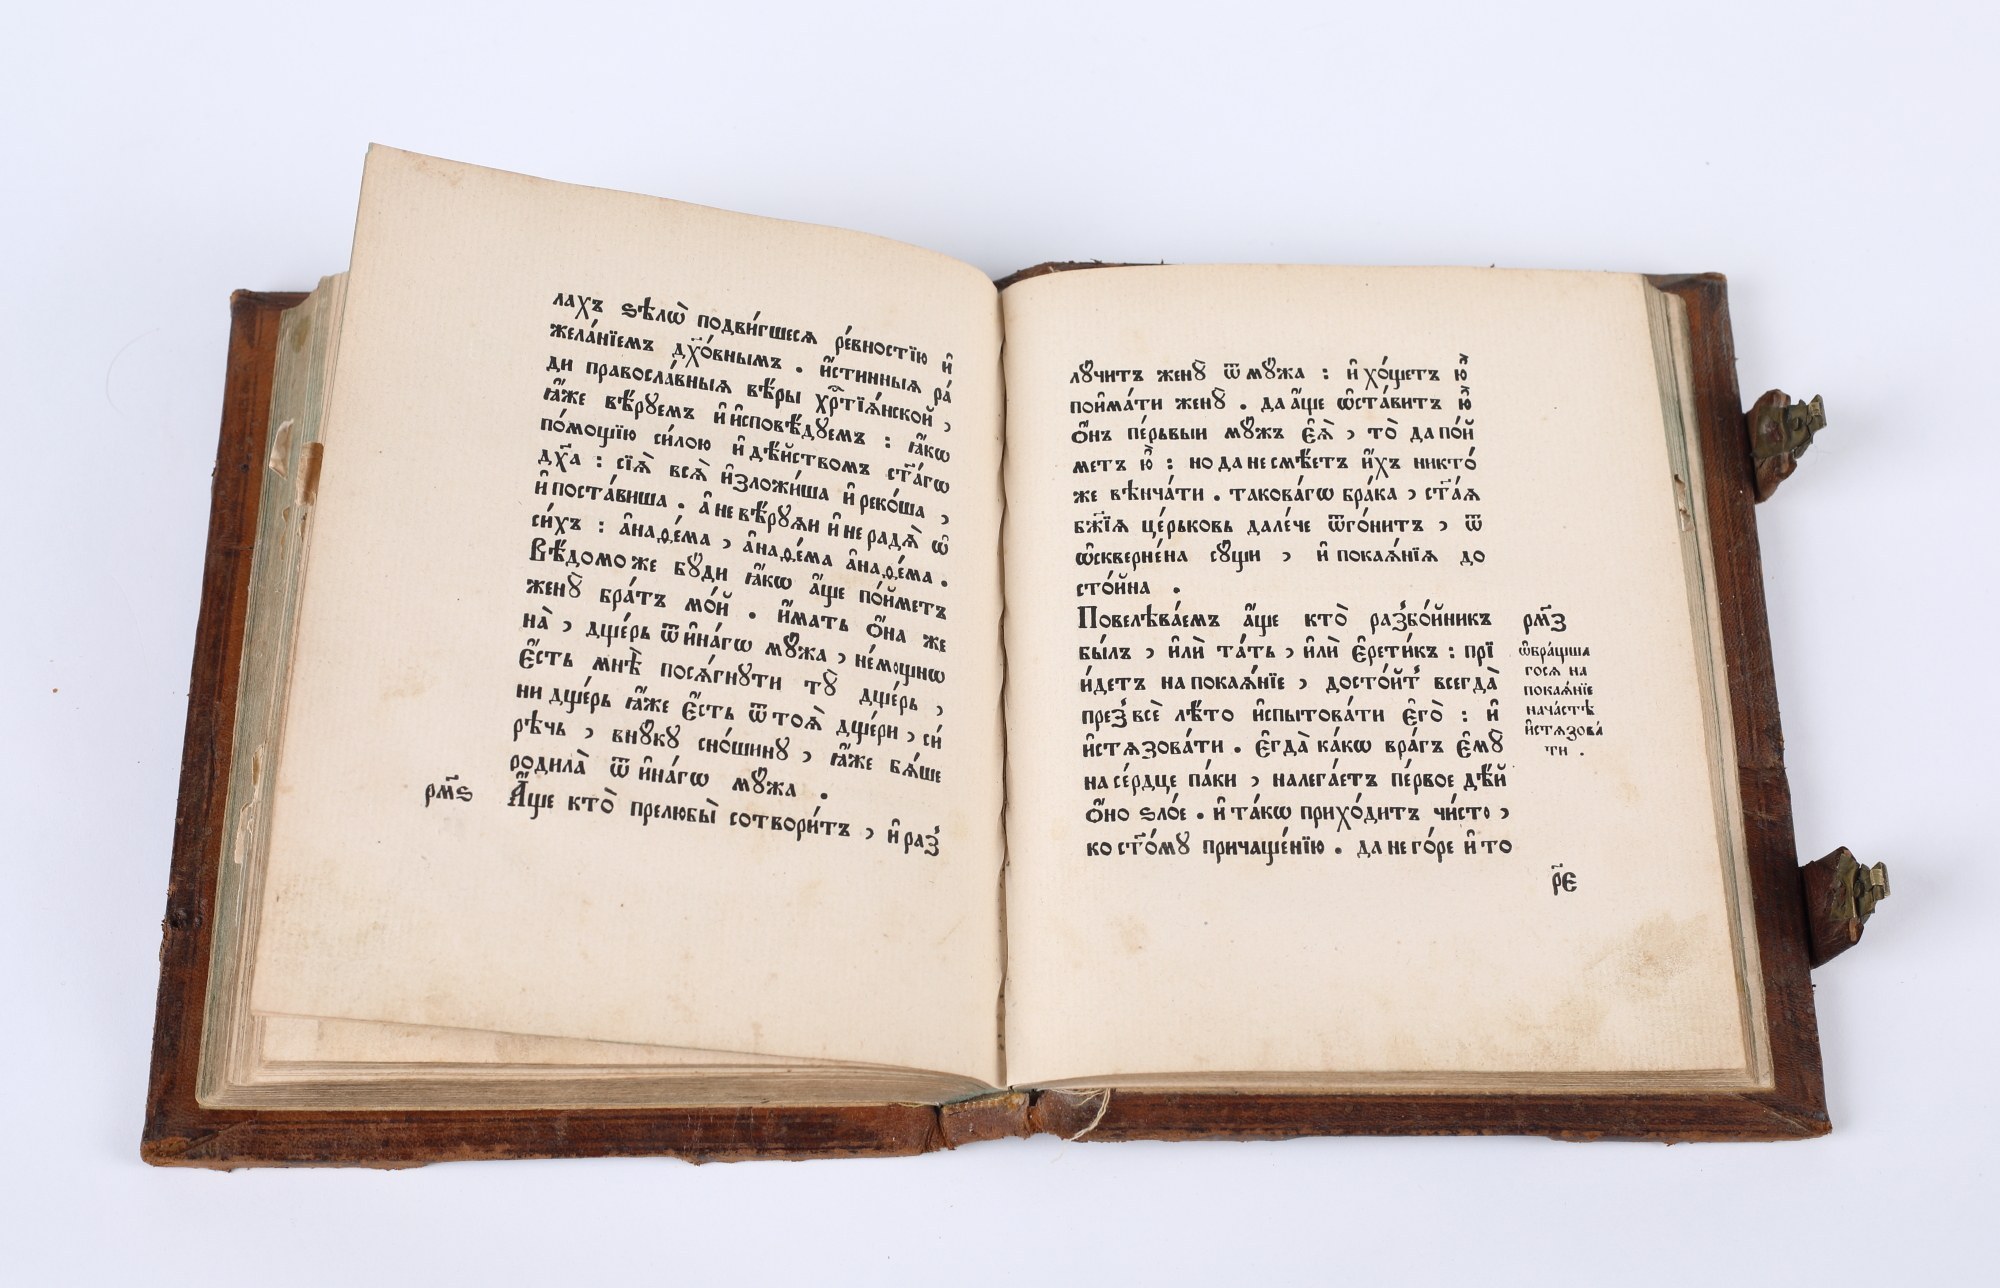 лахъ ѕѣлѡ̀ подви́гшеся ре́вностїю и҆
жела́нїемъ дх҃о́внымъ . и҆́стинныя ра́
ди правосла́вныя вѣ́ры хр҃тїѧ́нской ,
ꙗ҆́же вѣ́рꙋемъ и҆ и҆сповѣ́дꙋемъ : ꙗ҆́кѡ
по́мощїю си́лою и҆ дѣ́йствомъ ст҃а́гѡ
дх҃а : сїѧ̀ всѧ̀ и҆зложи́ша и҆ реко́ша ,
и҆ поста́виша . а҆ не вѣ́рꙋѧи и҆ не радѧ̀ ѡ҆
си́хъ : а҆наѳе́ма , а҆наѳе́ма а҆наѳе́ма .
Вѣ́домо же бꙋ́ди ꙗ҆́кѡ а҆́ще по́йметъ
женꙋ̀ бра́тъ мо́й . и҆́мать о҆́на же
на̀ , дще́рь ѿ и҆на́гѡ мꙋ́жа , не́мощнѡ
є҆́сть мнѣ̀ посѧ́гнꙋти тꙋ̀ дще́рь ,
ни дще́рь ꙗ҆́же є҆́сть ѿ тоѧ̀ дще́ри , си́
рѣчь , внꙋ́кꙋ сно́шинꙋ , ꙗ҆́же бѧ́ше
родила̀ ѿ и҆на́гѡ мꙋ́жа .
рм҃ѕ А҆́ще кто̀ прелюбы̀ сотвори́тъ , и҆ раз̾
лꙋ́читъ женꙋ̀ ѿ мꙋ́жа : и҆ хо́щетъ ю҆̀
пои҆ма́ти женꙋ̀ . да а҆́ще ѡ҆ста́витъ ю҆̀
о҆́нъ пе́рьвыи мꙋ́жъ є҆ѧ̀ , то̀ да по́й
метъ ю҆̀ : но да не смѣ́етъ и҆́хъ никто́
же вѣнча́ти . такова́гѡ бра́ка , ст҃а́ѧ
бж҃їѧ це́рьковь дале́че ѿго́нитъ , ѿ
ѡ҆скверне́на сꙋ́щи , и҆ покаѧ́нїѧ до
сто́йна .
Повелѣва́емъ а҆́ще кто̀ раз̾бо́йникъ
бы́лъ , и҆лѝ та́ть , и҆лѝ є҆рети́къ : прї
и́детъ на покаѧ́нїе , досто́йт̾ всегда̀
през̾ всѐ лѣ́то и҆спытова́ти є҆го̀ : и҆
и҆стѧзова́ти . є҆гда̀ ка́кѡ вра́гъ є҆мꙋ̀
на се́рдце па́ки , налега́етъ пе́рвое дѣ́й
о҆́но ѕло́е . и҆ та́кѡ прихо́дитъ чи́сто ,
ко ст҃о́мꙋ причаще́нїю . да не го́ре и҆ то
рм҃з
ѡ҆бра́щша
гося на
покаѧ́нїе
нача́стѣ
и҆стѧзова́
ти .
р҃є